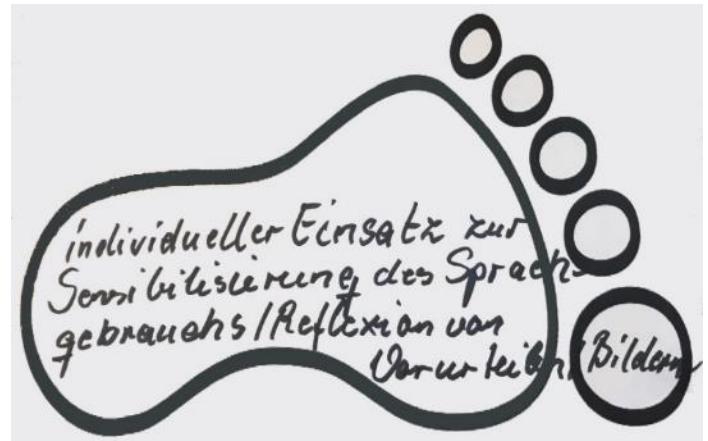 individueller Einsatz zur
Sensibilisierung des Sprach-
gebrauchs / Reflexion von
Vorurteilen / Bildern